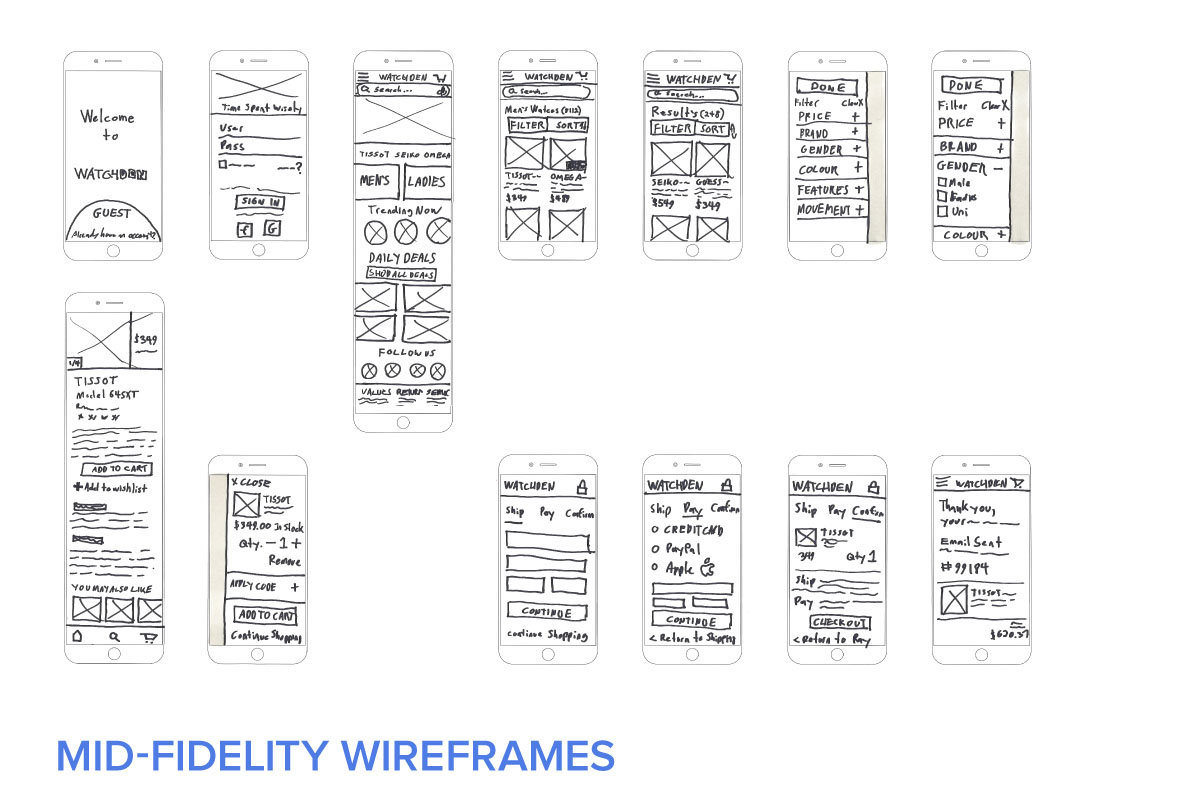 Welcome
to
WATCHDEN
GUEST
Already have an account?
Time Spent Wisely
User
Pass
?
SIGN IN
f G
WATCHDEN
Search...
TISSOT SEIKO OMEGA
MEN'S LADIES
Trending Now
DAILY DEALS
SHOP ALL DEALS
FOLLOW US
VALUES RETURN
WATCHDEN
Search...
Men's Watches
FILTER SORT
TISSOT OMEGA
$349 $489
WATCHDEN
Search...
Results (248)
FILTER SORT
SEIKO GUESS
$549 $349
DONE
Filter Clear X
PRICE +
BRAND +
GENDER +
COLOUR +
FEATURES +
MOVEMENT +
DONE
Filter Clear X
PRICE +
BRAND +
GENDER -
Male
Uni
COLOUR +
$349
1/4
TISSOT
Model 645XT
ADD TO CART
+ Add to wishlist
YOU MAY ALSO LIKE
X CLOSE
TISSOT
$349.00 In Stock
Qty. - 1 +
Remove
APPLY CODE +
ADD TO CART
Continue Shopping
WATCHDEN
Ship Pay Confirm
CONTINUE
Continue Shopping
WATCHDEN
Ship Pay Confirm
CREDIT CARD
PayPal
Apple
CONTINUE
< Return to Shipping
WATCHDEN
Ship Pay Confirm
TISSOT
349 Qty 1
Ship
Pay
CHECKOUT
< Return to Pay
WATCHDEN
Thank you,
your
Email Sent
#99184
TISSOT
$620.37
MID-FIDELITY WIREFRAMES